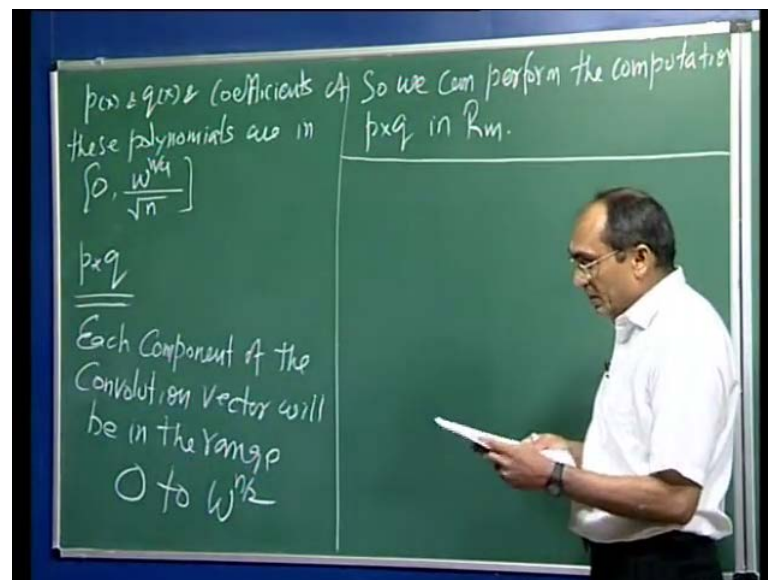 p(x) & q(x) & Coefficients of
these polynomials are in
[0, w^{n/4}/√n]
p×q
Each Component of the
Convolution Vector will
be in the range
0 to w^{n/2}
So we can perform the computation
p×q in Rm.